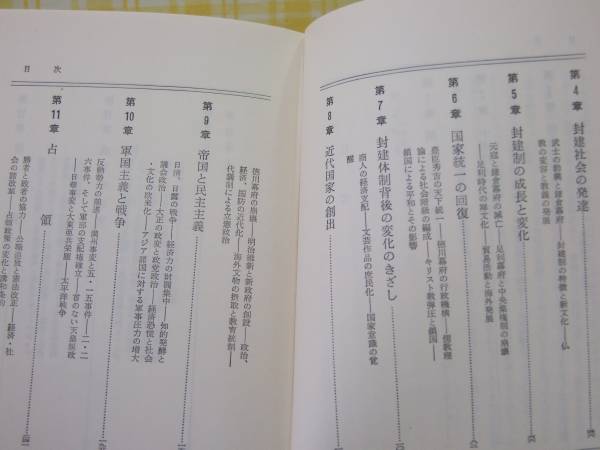 第4章 封建社会の発達
武士の勃興と鎌倉幕府――封建制の特徴と新文化――仏
教の変容と教義の発展
第5章 封建制の成長と変化
元寇と鎌倉幕府の滅亡――足利幕府と中央集権制の崩壊
――足利時代の禅文化――貿易活動と海外発展
第6章 国家統一の回復
豊臣秀吉の天下統一――徳川幕府の行政機構――儒教理
論による社会階級の編成――キリスト教弾圧と鎖国――
鎖国による平和とその影響
第7章 封建体制背後の変化のきざし
商人の経済支配――文芸作品の庶民化――国家意識の覚
醒
第8章 近代国家の創出
目 次
徳川幕府の崩壊――明治維新と新政府の創設――政治、
経済、国防の近代化――海外文物の摂取と教育統制――
代議制による立憲政治
第9章 帝国と民主主義
日清、日露の戦争――経済力の財閥集中――知的発酵と
議会政治――大正の政変と政党政治――経済恐慌と社会
・文化の欧米化――アジア諸国に対する軍事圧力の増大
第10章 軍国主義と戦争
反動勢力の前進――満州事変と五・一五事件――二・二
六事件、そして軍部の支配権確立――首のない天皇親政
――日華事変と大東亜共栄圏――太平洋戦争
第11章 占領
勝者と敗者の協力――公職追放と憲法改正――経済・社
会の諸改革――占領政策の変化と講和条約